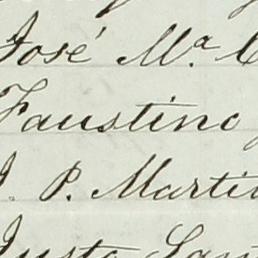 José Mª
Faustino
J. P. Martin
Justo San